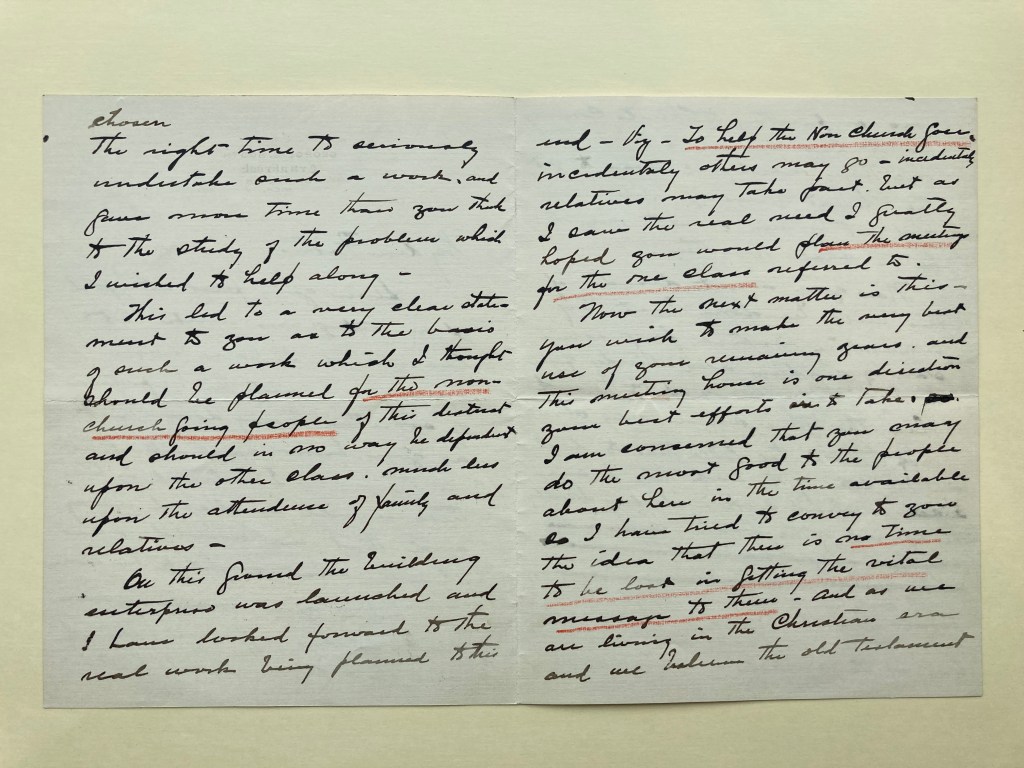 chosen
the right time to seriously
undertake such a work, and
gave more time than you think
to the study of the problem which
I wished to help along -
This led to a very clear state
ment to you as to the basis
of such a work which I thought
should be planned for the non-
church going people of this district
and should in no way be dependent
upon the other class. much less
upon the attendence of family and
relatives -
On this ground the building
enterprise was launched and
I have looked forward to the
real work being planned to this
end - Viz - To help the Non Church Goer
incidentaly others may go - incidentaly
relatives may take part. but as
I saw the real need I greatly
hoped you would plan the meeting
for the one class referred to.
Now the next matter is this -
you wish to make the very best
use of your remaining years. and
This meeting house is one direction
your best efforts to take.
I am concerned that you may
do the most good to the people
about here in the time available
so I have tried to convey to you
the idea that there is no time
to be lost in getting the vital
message to them - and as we
are living in the Christian era
and we believe the old testament